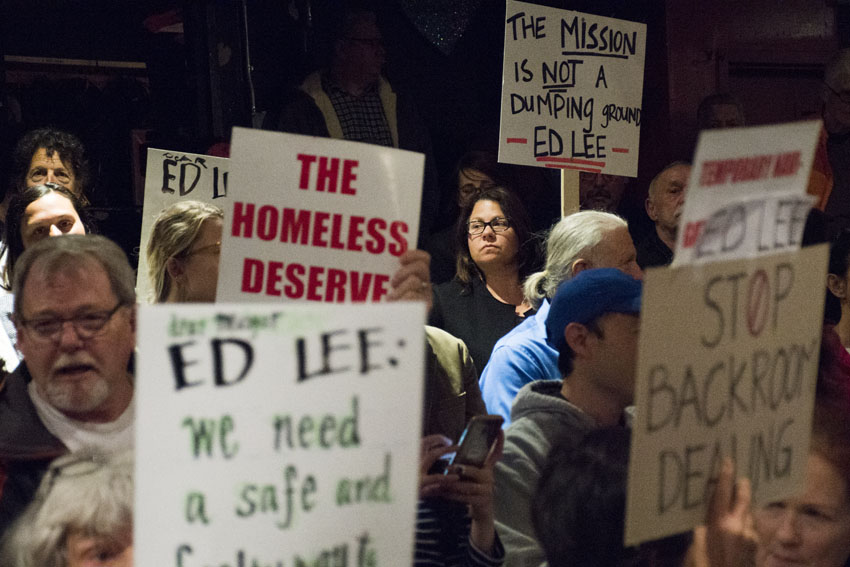 THE MISSION
IS NOT A
DUMPING GROUND
- ED LEE -
ED L
THE
HOMELESS
DESERVE
TEMPORARY
ED LEE
STOP
BACKROOM
DEALING
dear mayor
ED LEE:
we need
a safe and
to